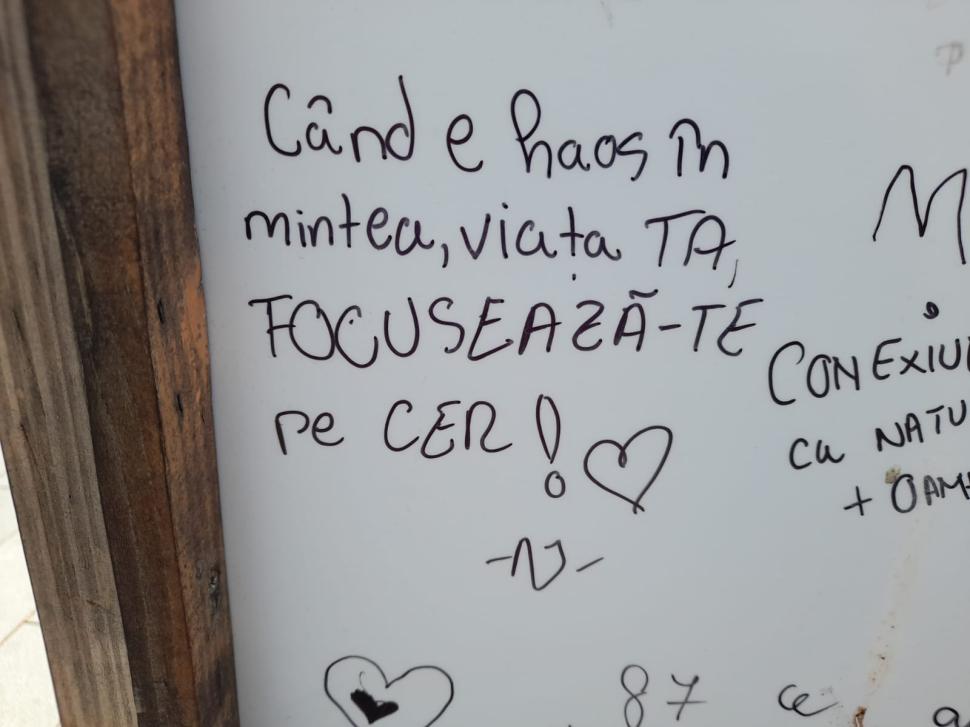 Când e haos în
mintea, viața TA,
FOCUSEAZĂ-TE
pe CER!
-N-
CONEXIU
cu NATU
+ OAM
87 ce